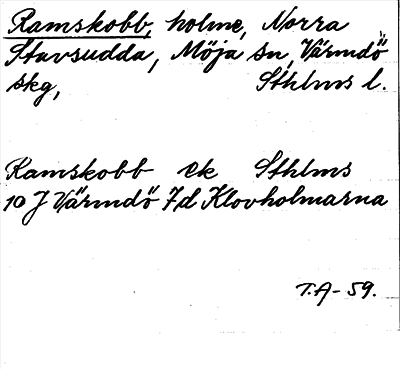 Ramskobb, holme, Norra
Stavsudda, Möja sn, Värmdö
skg, Sthlms l.
Ramskobb ek Sthlms
10 J Värmdö 7d Klovholmarna
T.A-59.